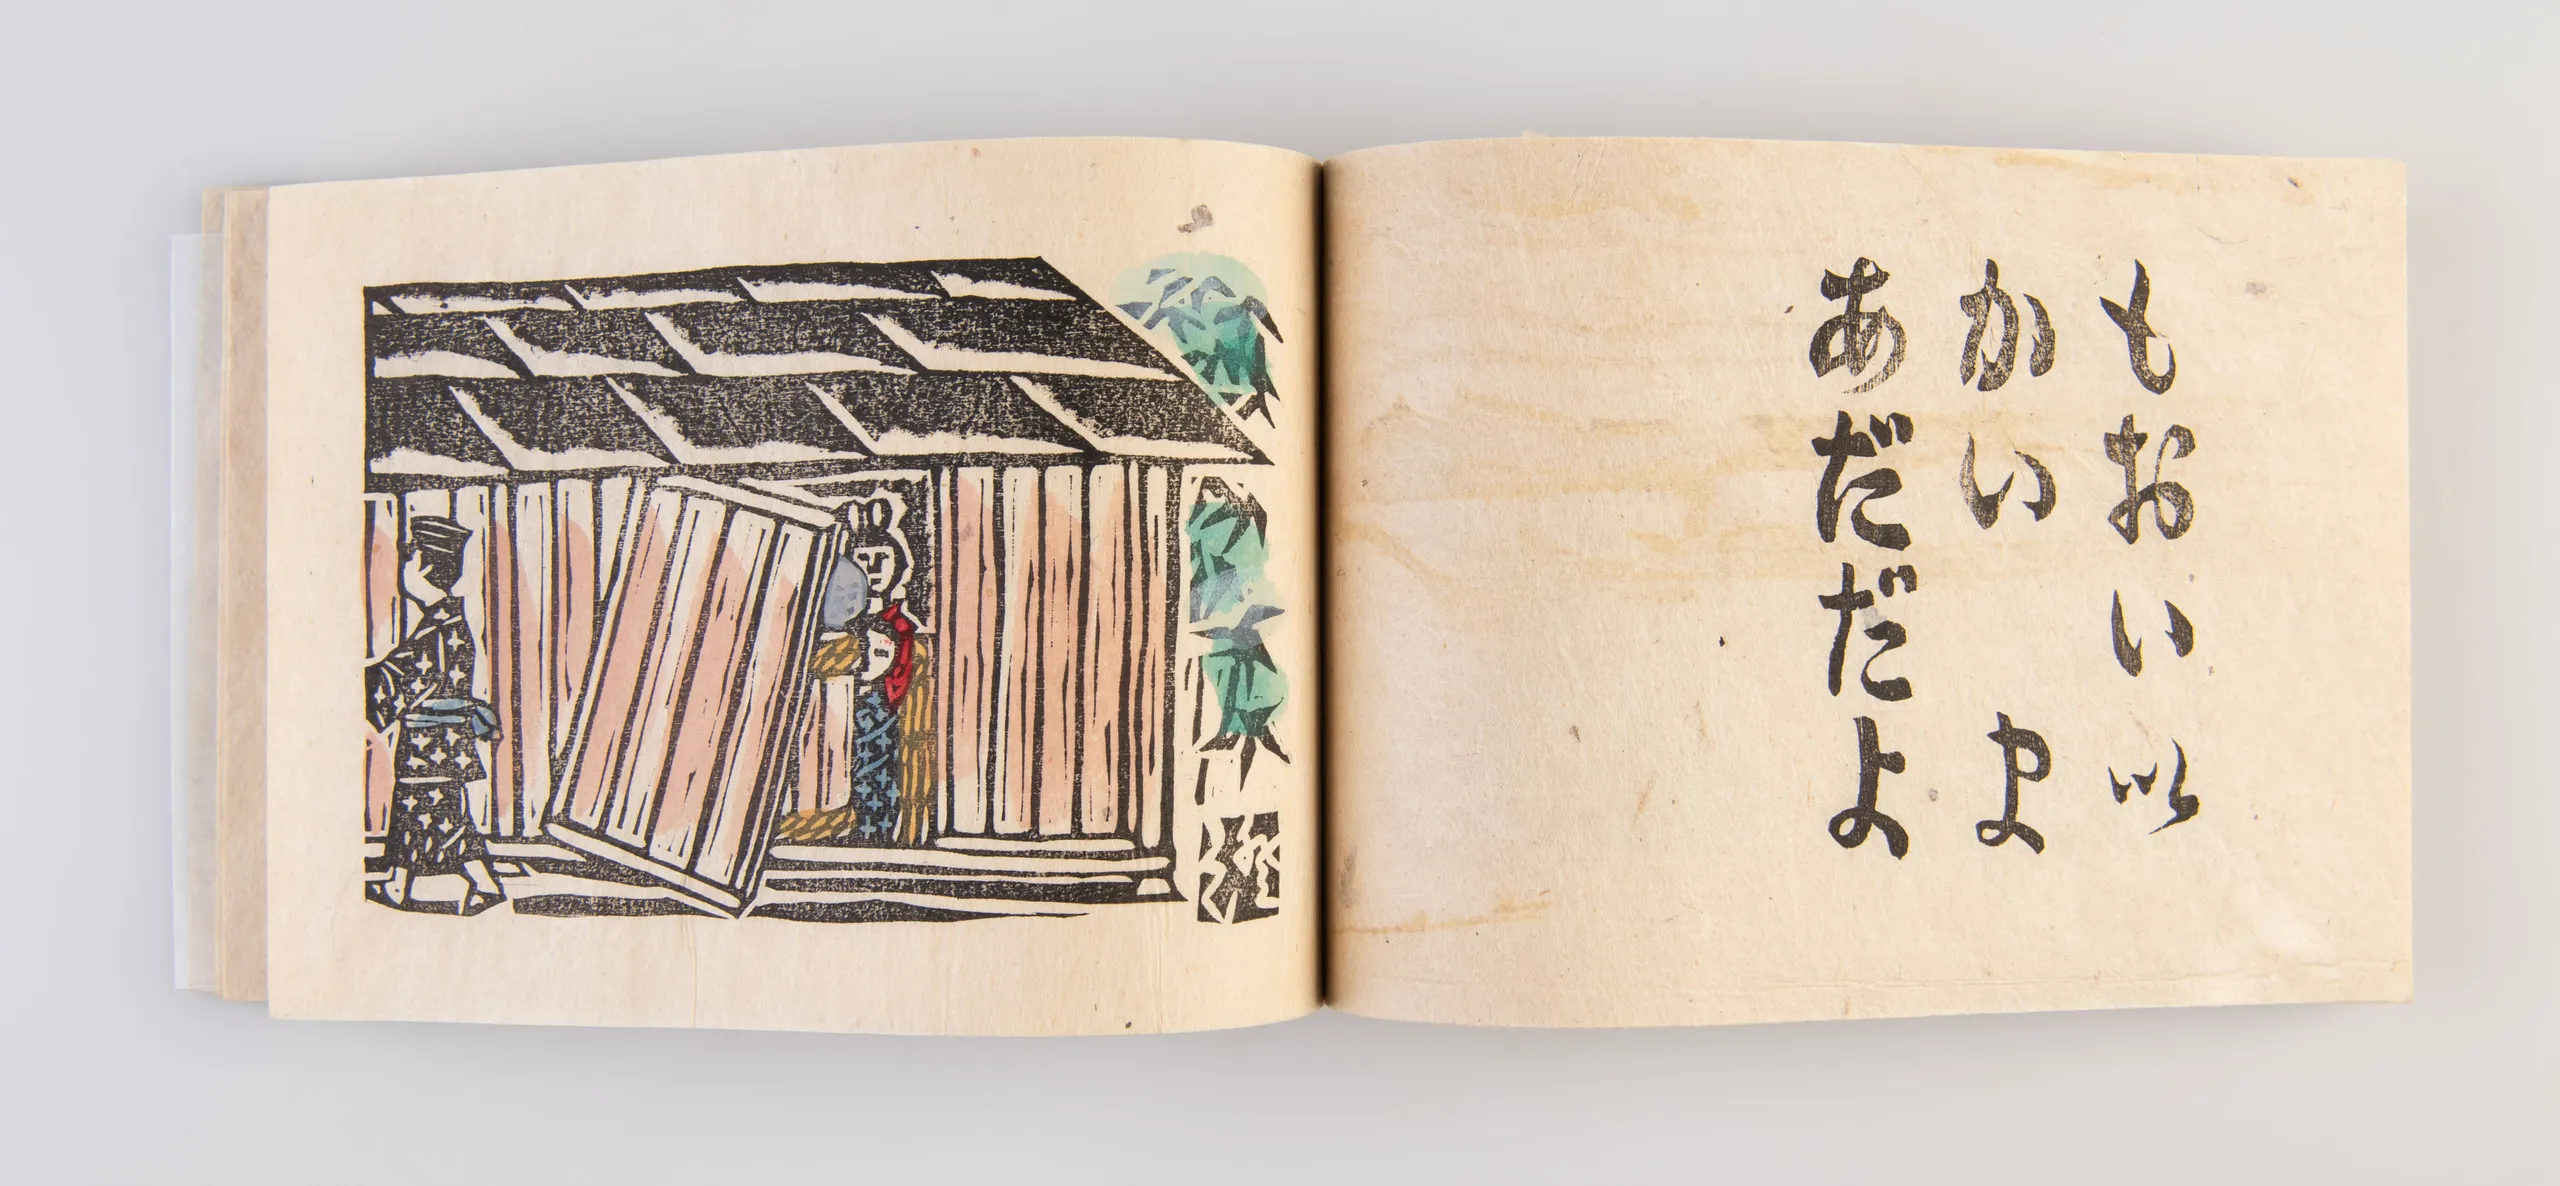 もおいい
かい　ま
あだだよ